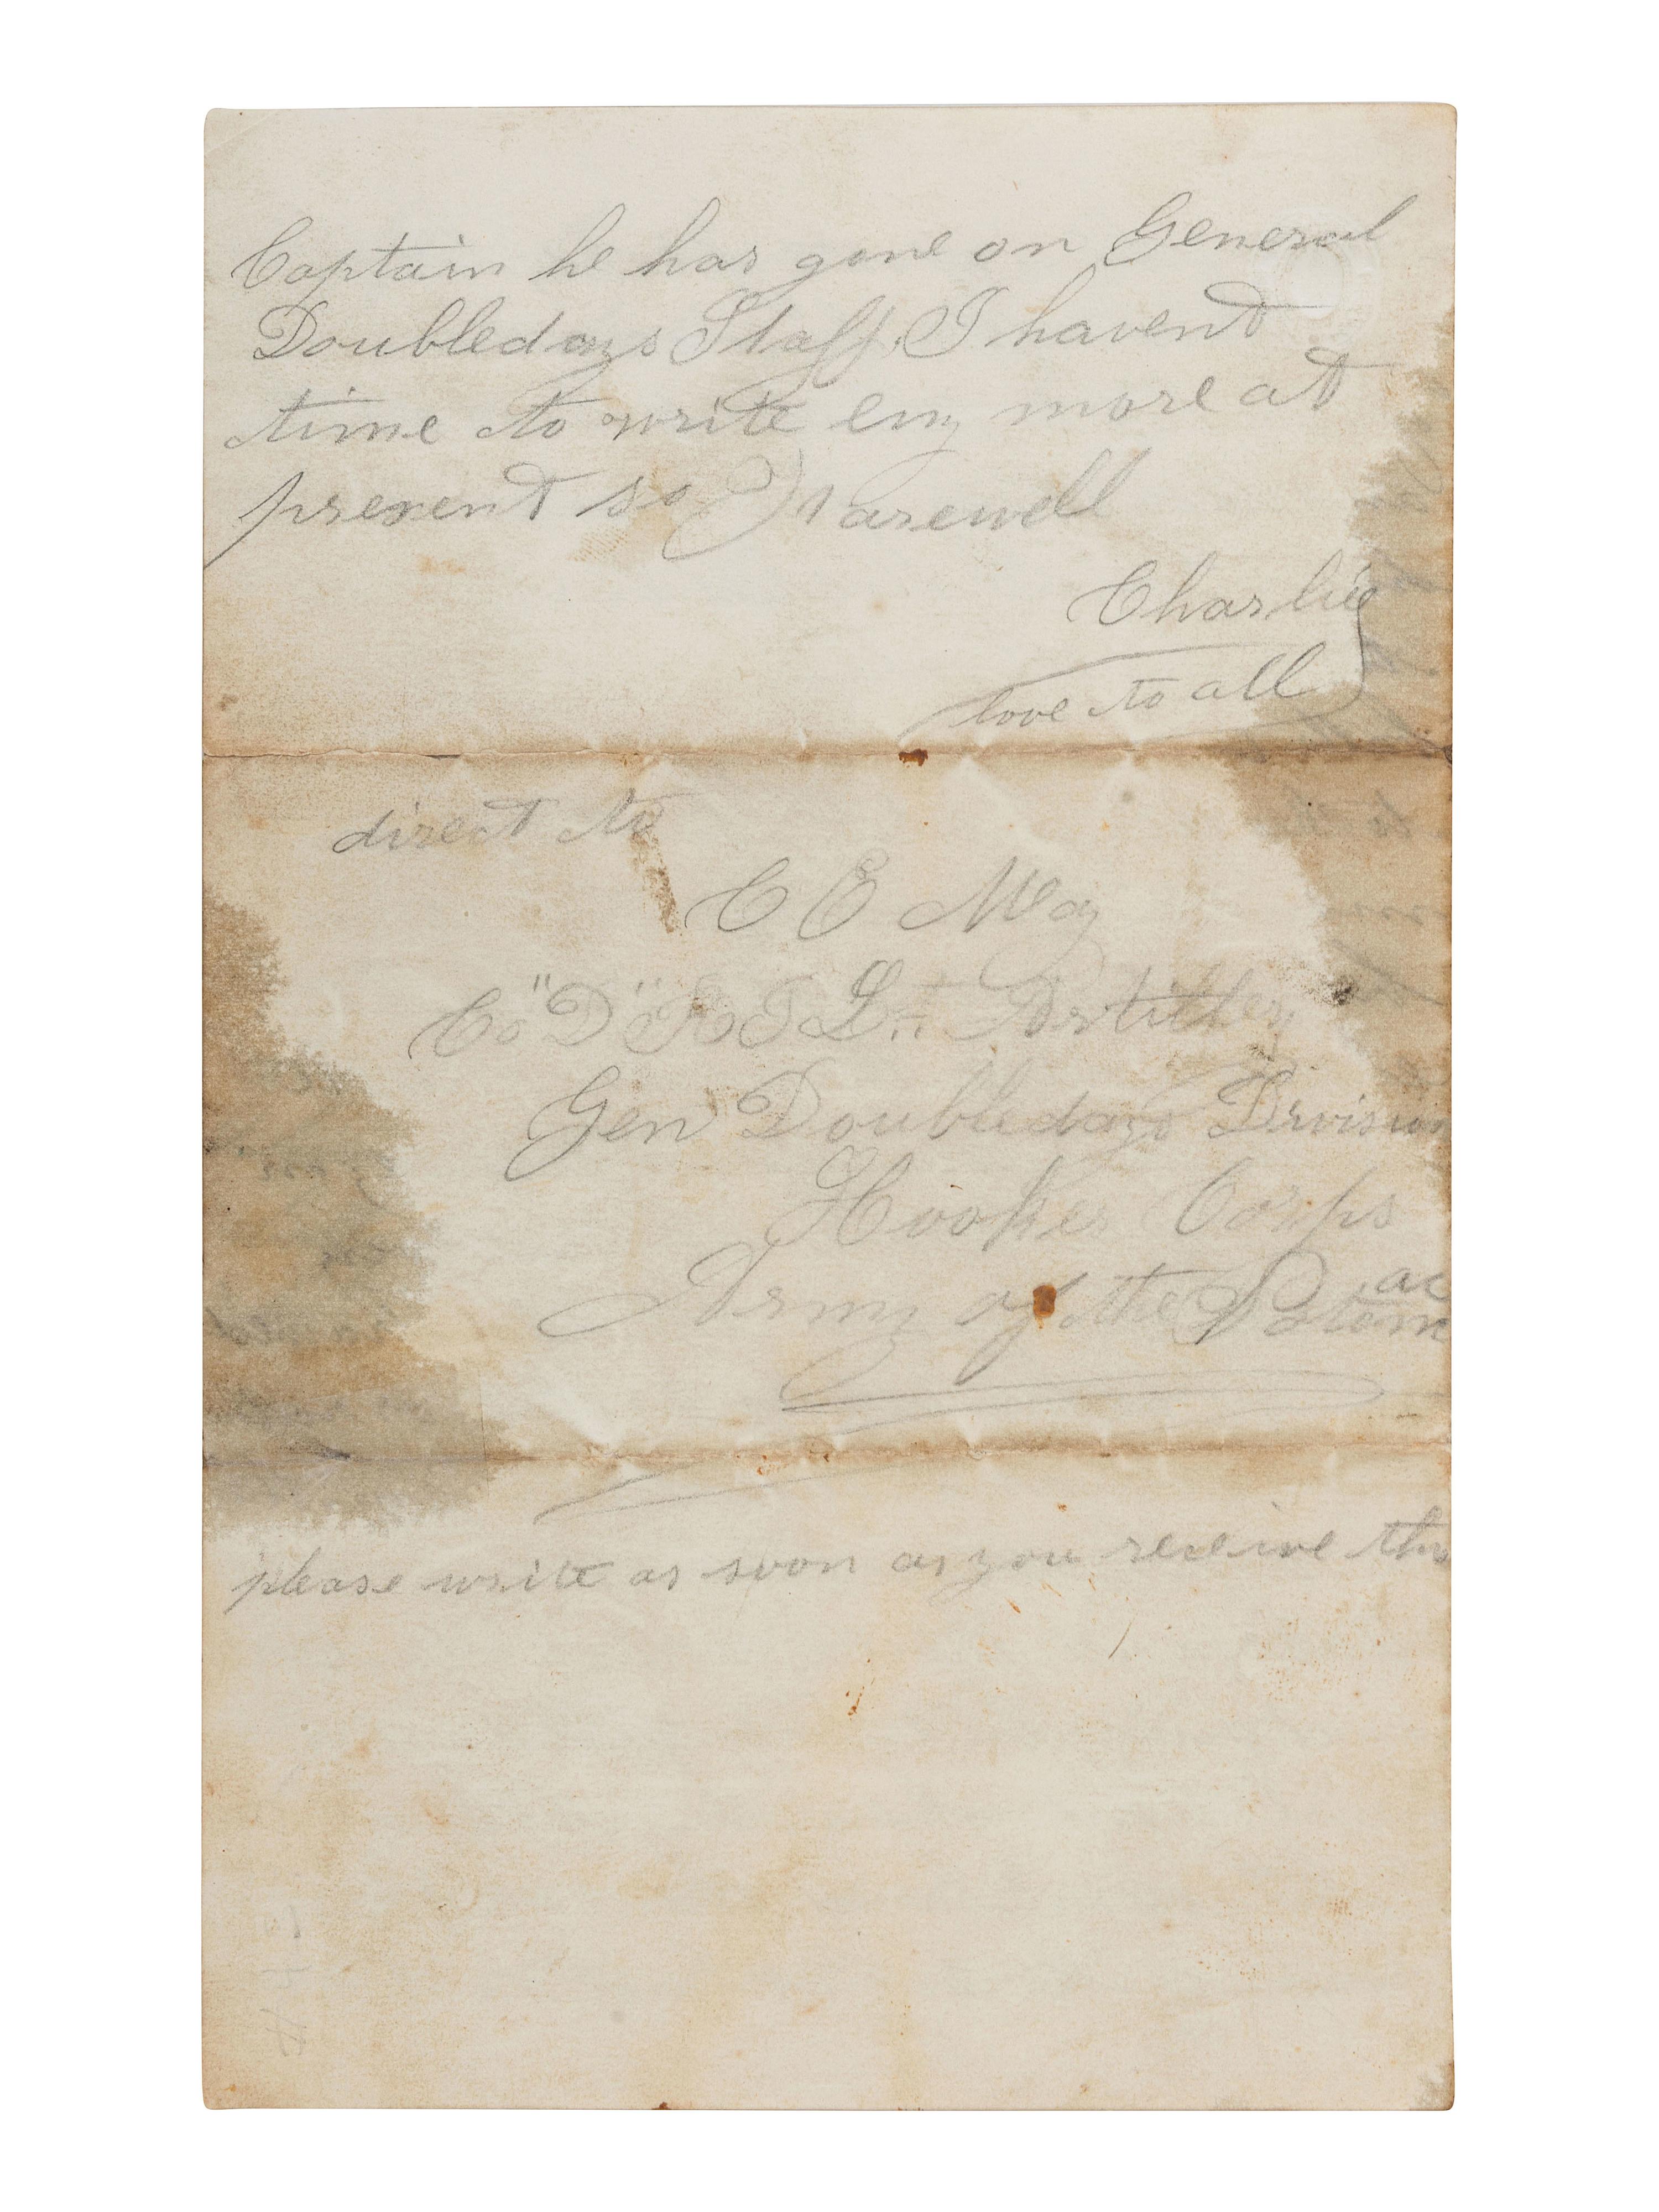 Captain he has gone on General
Doubledays Staff. I havent
time to write eny more at
present so Farewell
Charlie
love to all
direct to
C E May
Co "D" R I Lt Artillery
Gen Doubledays Division
Hooker Corps
Army of the Potomac
please write as soon as you receive this